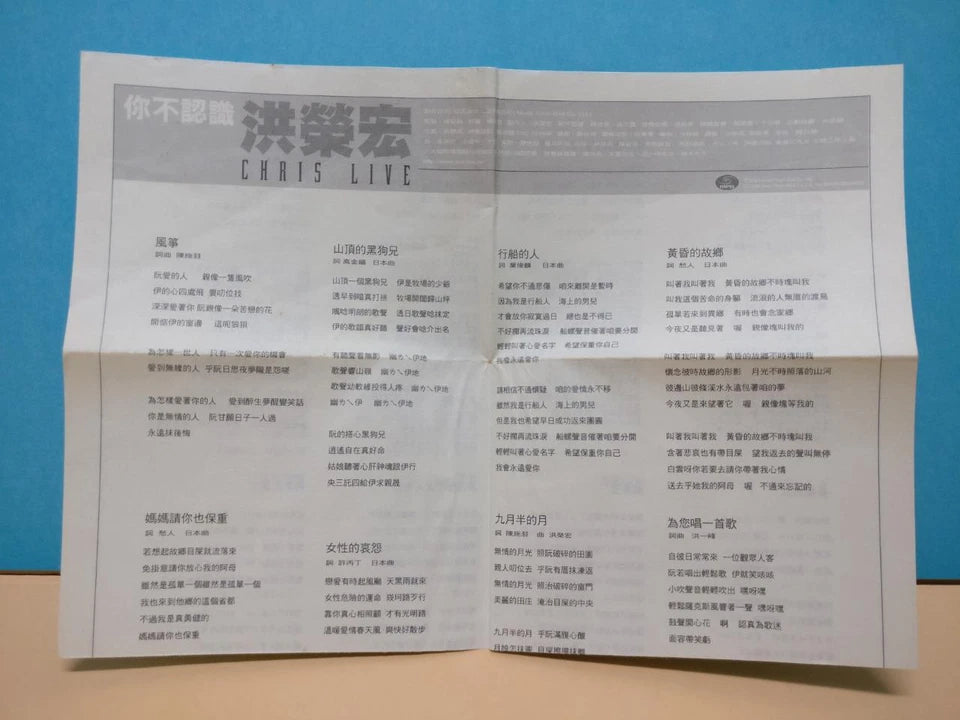 你不認識
洪榮宏
CHRIS LIVE
風箏
詞曲 陳維祥
阮愛的人 親像一隻風吹
伊的心四處飛 要叨位找
深深愛著你 阮親像一朵苦戀的花
開佇伊的窗邊 這呢狼狽
為怎樣一世人 只有一次愛你的機會
愛到無緣的人 乎阮日思夜夢攏是怨嗟
為怎樣愛著你的人 愛到醉生夢醒變笑話
你是無情的人 阮甘願日子一人過
永遠抹後悔
媽媽請你也保重
詞 愁人 日本曲
若想起故鄉目屎就流落來
免掛意請你放心我的阿母
雖然是孤單一個雖然是孤單一個
我也來到他鄉的這個省都
不過我是真勇健的
媽媽請你也保重
山頂的黑狗兄
詞 高金福 日本曲
山頂一個黑狗兄 伊是牧場的少爺
透早到暗真打拚 牧場開闊歸山坪
嘴唸明朗的歌聲 透日歌唸抹定
伊的歌喉真好聽 聲好會唸介出名
有聽聲看無影 幽ㄉㄟ伊地
歌聲響山嶺 幽ㄉㄟ伊地
歌聲幼軟雖投得人疼 幽ㄉㄟ伊地
幽ㄉㄟ伊 幽ㄉㄟ伊地
阮的搭心黑狗兄
逍遙自在真好命
姑娘聽著心肝神魂跟伊行
央三託四給伊求親晟
女性的哀怨
詞 許丙丁 日本曲
戀愛有時起風颱 天黑雨就來
女性危險的運命 崁坷路歹行
靠你真心相照顧 才有光明路
溫暖愛情春天風 爽快好散步
行船的人
詞 葉俊麟 日本曲
希望你不通悲傷 咱來離開是暫時
因為我是行船人 海上的男兒
才會放你寂寞過日 總也是不得已
不好擱再流珠淚 船螺聲音催著咱要分開
輕輕叫著心愛名字 希望保重你自己
我會永遠愛你
請相信不通懷疑 咱的愛情永不移
雖然我是行船人 海上的男兒
但是我也希望早日成功返來團圓
不好擱再流珠淚 船螺聲音催著咱要分開
輕輕叫著心愛名字 希望保重你自己
我會永遠愛你
九月半的月
詞 陳維祥 曲 洪榮宏
無情的月光 照阮破碎的田園
親人叨位去 乎阮有厝抹凍返
無情的月光 照治破碎的窗門
美麗的田庄 淹治目屎的中央
九月半的月 乎阮滿腹心酸
黃昏的故鄉
詞 愁人 日本曲
叫著我叫著我 黃昏的故鄉不時塊叫我
叫我這個苦命的身軀 流浪的人無厝的渡鳥
孤單若來到異鄉 有時也會念家鄉
今夜又是聽見著 喔 親像塊叫我的
叫著我叫著我 黃昏的故鄉不時塊叫我
懷念彼時故鄉的形影 月光不時照落的山河
彼邊山彼條溪水永遠包著咱的夢
今夜又是來望著它 喔 親像塊等我的
叫著我叫著我 黃昏的故鄉不時塊叫我
含著悲哀也有帶目屎 望我返去的聲叫無停
白雲呀你若要去請你帶著我心情
送去乎她我的阿母 喔 不通來忘記的
為您唱一首歌
詞曲 洪一峰
自彼日常常來 一位觀眾人客
阮若唱出輕鬆歌 伊就笑咳咳
小吹聲音輕輕吹出 嘿呀嘿
輕鬆薩克斯風響著一聲 嘿呀嘿
鼓聲開心花 啊 認真為歌迷
面容帶笑虧